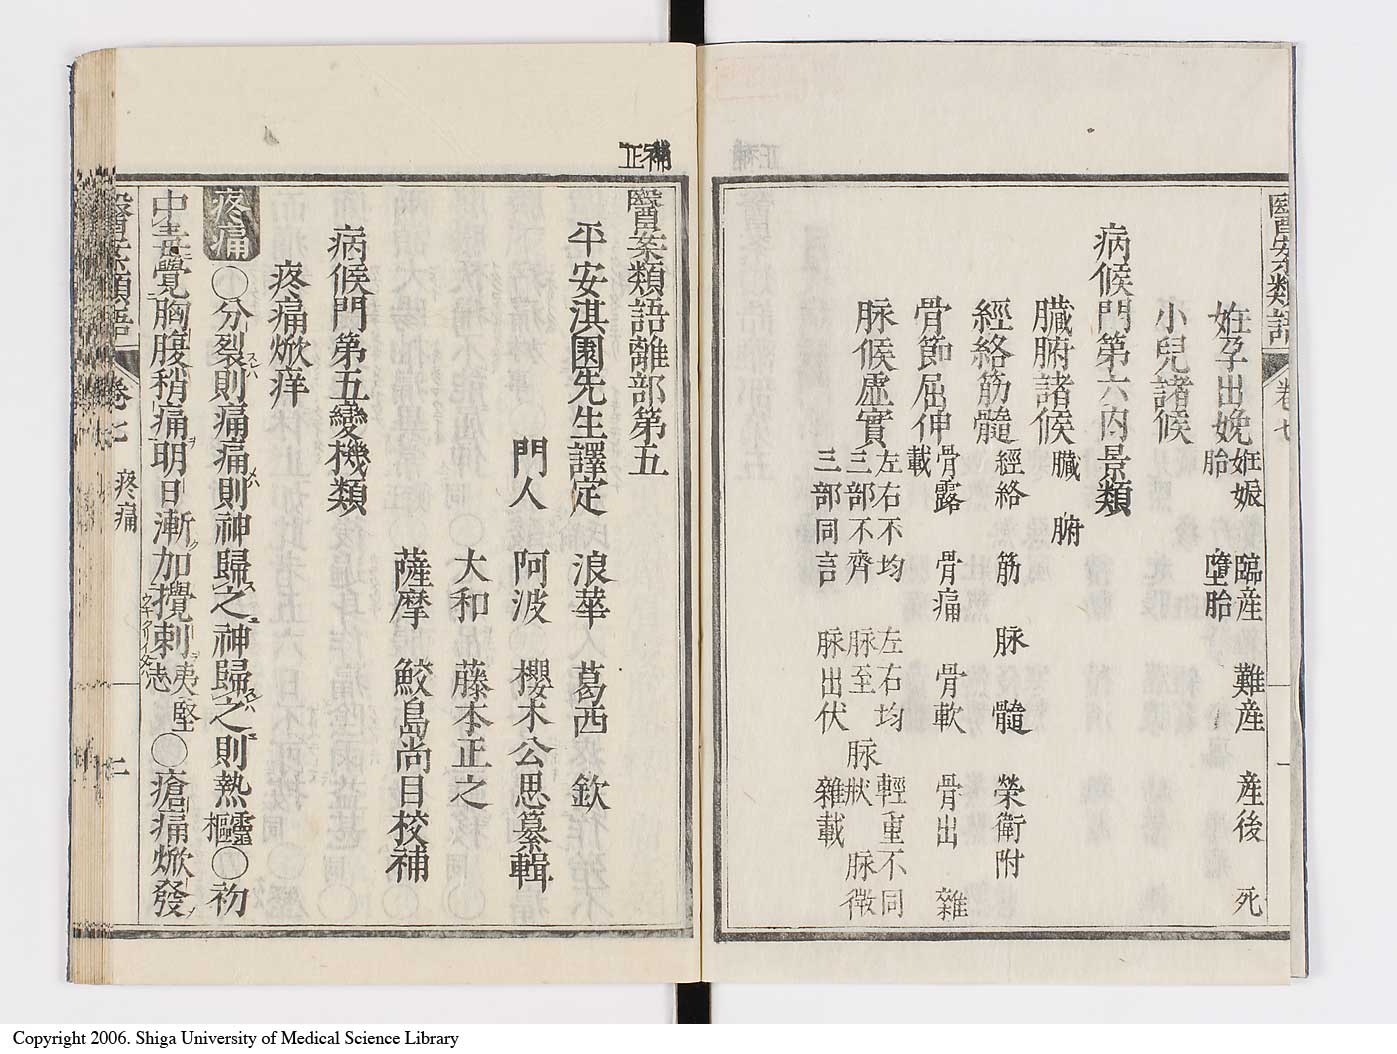 醫案類語
卷七
一
妊孕出娩 妊娠 臨産 難産 産後 死
胎 墮胎
小兒諸候
病候門第六内景類
臟腑諸候 臟 腑
經絡筋髓 經絡 筋 脉 髓 榮衛附
骨節屈伸 骨露 骨痛 骨軟 骨出 雜
載
脉候虚實 左右不均 左右均 輕重不同
三部不齊 脉至 脉狀 脉微
三部同言 脉出伏 雜載
補正
醫案類語離部第五
平安淇園先生譯定 浪華 葛西 欽
門人 阿波 櫻木公思纂輯
大和 藤本正之
薩摩 鮫島尚目校補
病候門第五變機類
疼痛焮痒
疼痛 ○分裂則痛痛則神歸之神歸之則熱 靈樞 ○初
中毒覺胸腹稍痛明日漸加攪刺 夷堅志 ○瘡痛焮發
醫案類語
卷七
疼痛
二
Copyright 2006. Shiga University of Medical Science Library